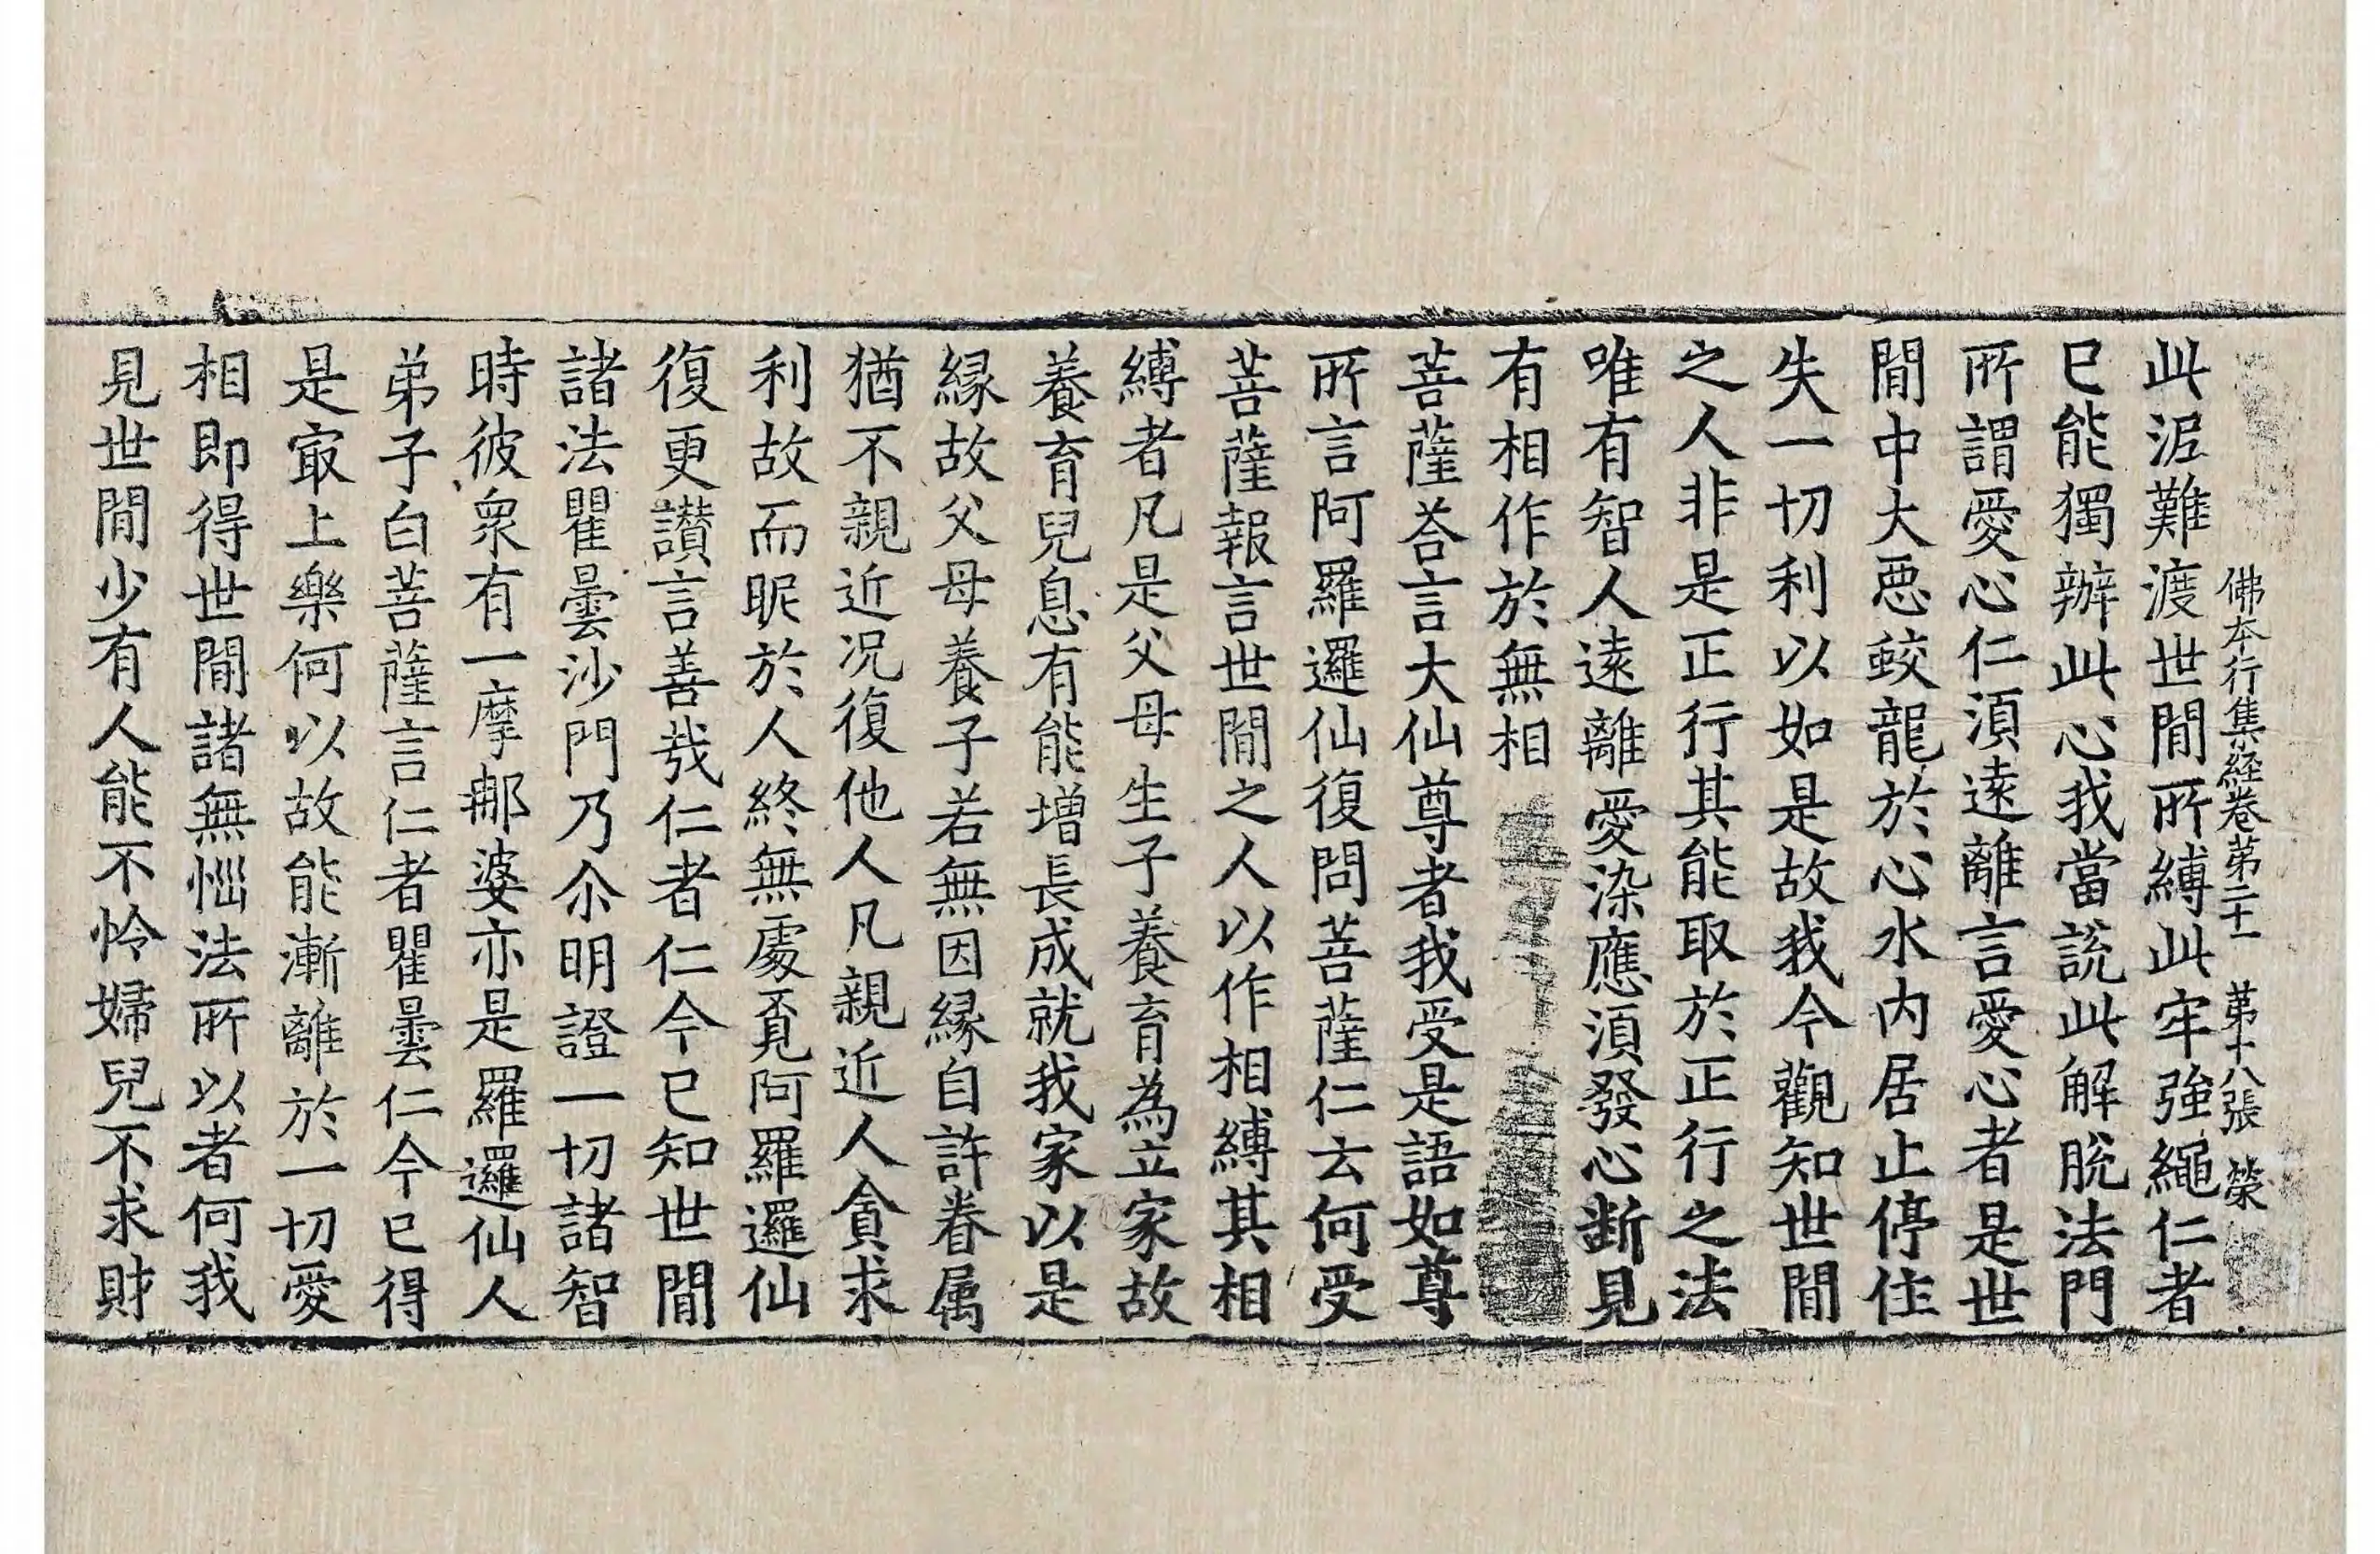 佛本行集経卷苐二十一 苐十八張 榮
此泥難渡世間所縛此牢強繩仁者
已能獨辦此心我當説此解脱法門
所謂愛心仁湏逺離言愛心者是世
間中大悪蛟龍於心水内居止停住
失一切利以如是故我今觀知世間
之人非是正行其能取於正行之法
唯有智人逺離愛染應湏發心断見
有相作於無相
菩薩荅言大仙尊者我受是語如尊
所言阿羅邏仙復問菩薩仁云何受
菩薩報言世間之人以作相縛其相
縛者凡是父母生子養育為立家故
養育兒息有能增長成就我家以是
縁故父母養子若無因縁自許眷属
猶不親近况復他人凡親近人貪求
利故而昵於人終無處覔阿羅邏仙
復更讃言善㢤仁者仁今已知世間
諸法瞿曇沙門乃尒明證一切諸智
時彼衆有一摩那婆亦是羅邏仙人
弟子白菩薩言仁者瞿曇仁今已得
是㝡上樂何以故能漸離於一切愛
相即得世間諸無惱法所以者何我
見世間少有人能不怜婦兒不求財